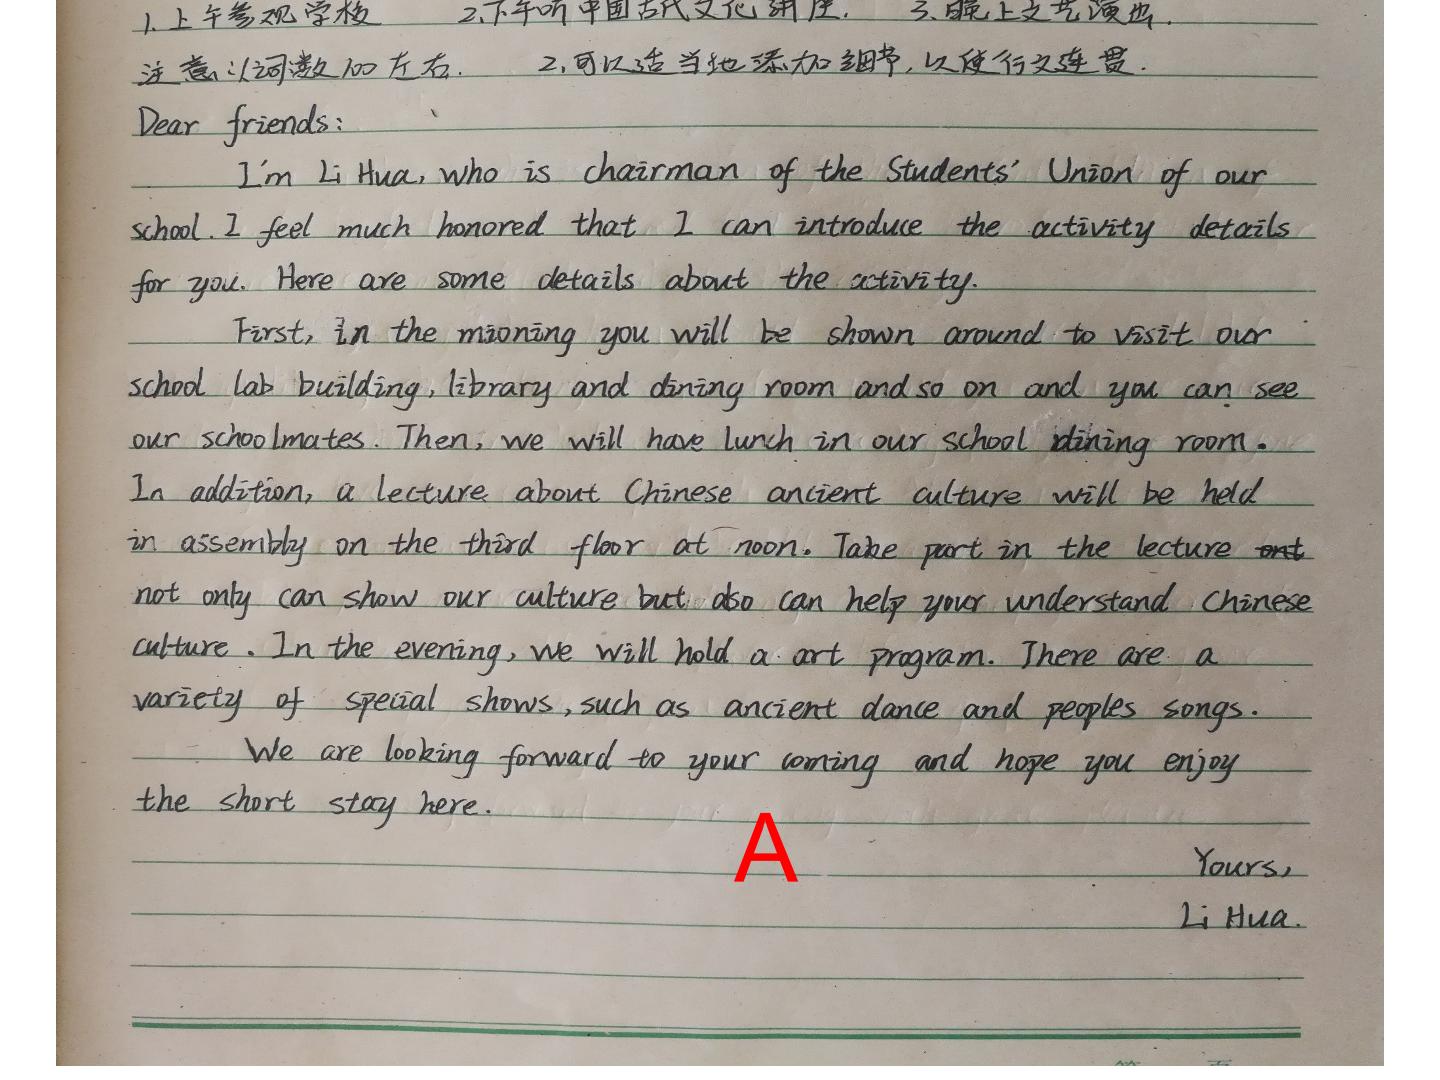 1.上午参观学校 2.下午听中国古代文化讲座. 3.晚上文艺演出.
注意:1.词数100左右. 2.可以适当地添加细节,以使行文连贯.
Dear friends:
I'm Li Hua, who is chairman of the Students' Union of our
school. I feel much honored that I can introduce the activity details
for you. Here are some details about the activity.
First, in the mioning you will be shown around to visit our
school lab building, library and dining room and so on and you can see
our schoolmates. Then, we will have lunch in our school dining room.
In addition, a lecture about Chinese ancient culture will be held
in assembly on the third floor at noon. Take part in the lecture
not only can show our culture but also can help your understand Chinese
culture. In the evening, we will hold a art program. There are a
variety of special shows, such as ancient dance and peoples songs.
We are looking forward to your coming and hope you enjoy
the short stay here.
A
Yours,
Li Hua.